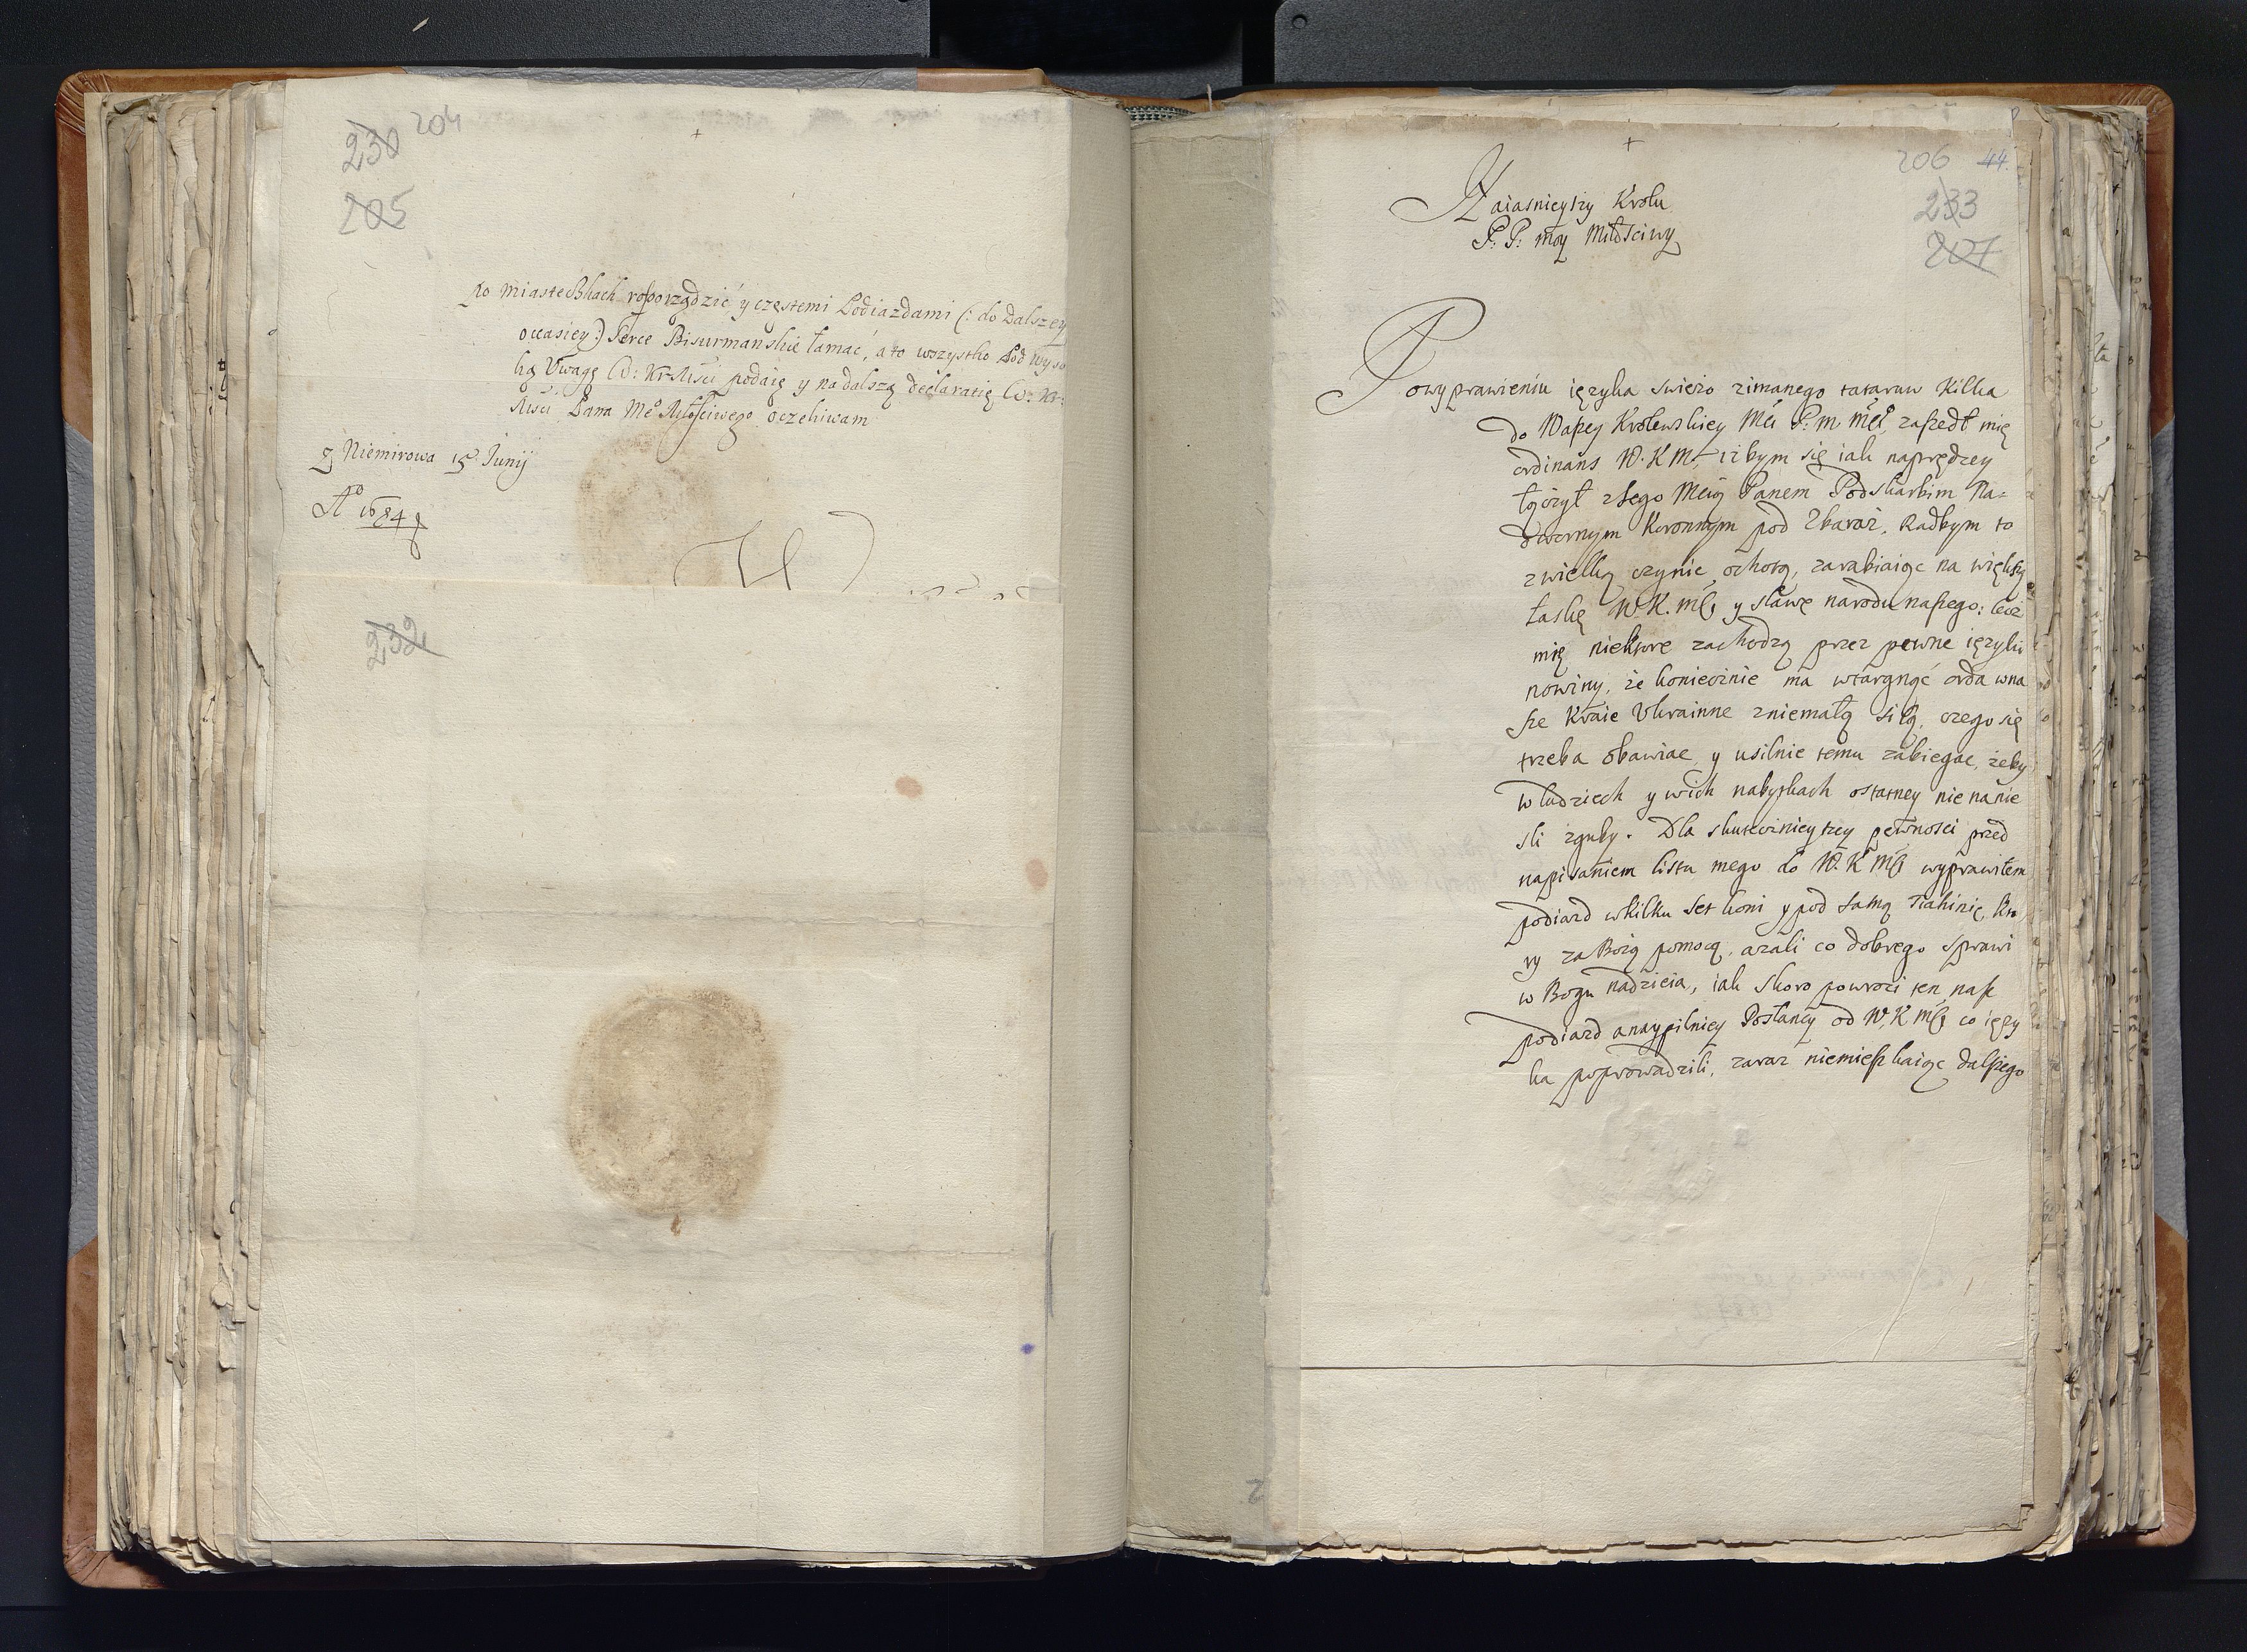 230 204
205
+
po miasteczkach rosporządzić y częstemi Podiazdami (: do Dalszey
occasiey :) Serce Bisurmanskie łamać, a to wszystko Pod wyso
ką Uwagę W: Kr: Msci podaię y na dalszą declaratią W: Kr:
Msci Pana Me° Młosciwego oczekiwam
z Niemirowa 15 Junij
A° 1684
232
+
206 44
233
207
Naiasnieyszy Krolu
P: P: moy Miłosciwy
Powyprawieniu ięzyka swieżo zimanego tataruw kilka
do Waszey Krolewskiey Mci P: m Mć°, zaszedł mię
ordinans W. K M, iżbym się iak naprędzey
łączył z Jego Mcią Panem Podskarbim Na-
dwornym Koronnym pod Zbaraż. Radbym to
z wielką czynic ochotą, zarabiaiąc na większą
łaskę W K. mći y sławę narodu naszego: lecz
mię niektore zachodzą przez pewne ięzyki
nowiny, że koniecznie ma wtargnąć orda wna
sze Kraie Ukrainne zniemałą siłą, czego się
trzeba obawiac y usilnie temu zabiegac, żeby
w ludziech y wich nabytkach ostatney nie nanie
sli zguby. Dla skutecznieyszey pewnosci przed
napisaniem listu mego do W. K Mći wyprawiłem
podiazd wkilku set koni y pod samą Tiahinię, kto
ry za Bożą pomocą, azali co dobrego sprawi
w Bogu nadzieia, iak skoro powroci ten nasz
podiazd a naypilniey Posłancy od W. K Mći co ięzy
ka poprowadzili, zaraz niemieszkaiąc dalszego
2